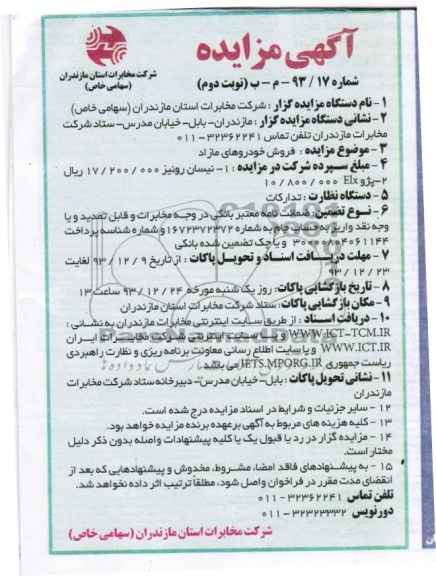 آگهی مزایده
شماره ۱۷ / ۹۳ - م - ب (نوبت دوم)
شرکت مخابرات استان مازندران
(سهامی خاص)
۱ - نام دستگاه مزایده گزار : شرکت مخابرات استان مازندران (سهامی خاص)
۲ - نشانی دستگاه مزایده گزار : مازندران- بابل- خیابان مدرس- ستاد شرکت
مخابرات مازندران تلفن تماس ۳۲۳۶۲۲۴۱-۰۱۱
۳ - موضوع مزایده : فروش خودروهای مازاد
۴ - مبلغ سپرده شرکت در مزایده : ۱- نیسان رونیز ۱۷/۲۰۰/۰۰۰ ریال
۲-پژو Elx ۱۰/۸۰۰/۰۰۰
۵ - دستگاه نظارت : تدارکات
۶ - نوع تضمین : ضمانت نامه معتبر بانکی در وجه مخابرات و قابل تمدید و یا
وجه نقد واریز به حساب جام به شماره ۱۶۷۲۳۷۲۳۷۲ و شماره شناسه پرداخت
و یا چک تضمین شده بانکی
۷ - مهلت دریافت اسناد و تحویل پاکات : از تاریخ ۹ / ۱۲ / ۹۳ لغایت
۲۳ / ۱۲ / ۹۳
۸ - تاریخ بازگشایی پاکات : روز یک شنبه مورخه ۲۴ / ۱۲ / ۹۳ ساعت ۱۳
۹ - مکان بازگشایی پاکات : ستاد شرکت مخابرات استان مازندران
۱۰ - دریافت اسناد : از طریق سایت اینترنتی مخابرات مازندران به نشانی :
WWW.ICT-TCM.IR و یا سایت اینترنتی شرکت مخابرات ایران
WWW.ICT.IR و یا سایت اطلاع رسانی معاونت برنامه ریزی و نظارت راهبردی
ریاست جمهوری IETS.MPORG.IR می باشد
۱۱ - نشانی تحویل پاکات : بابل- خیابان مدرس- دبیرخانه ستاد شرکت مخابرات
مازندران
۱۲ - سایر جزئیات و شرایط در اسناد مزایده درج شده است.
۱۳ - کلیه هزینه های مربوط به آگهی برعهده برنده مزایده خواهد بود.
۱۴ - مزایده گزار در رد یا قبول یک یا کلیه پیشنهادات واصله بدون ذکر دلیل
مختار است.
۱۵ - به پیشنهادهای فاقد امضا، مشروط، مخدوش و پیشنهادهایی که بعد از
انقضای مدت مقرر در فراخوان واصل شود، مطلقاً ترتیب اثر داده نخواهد شد.
تلفن تماس ۳۲۳۶۲۲۴۱-۰۱۱
دورنویس ۳۲۳۲۳۳۳۲-۰۱۱
شرکت مخابرات استان مازندران (سهامی خاص)